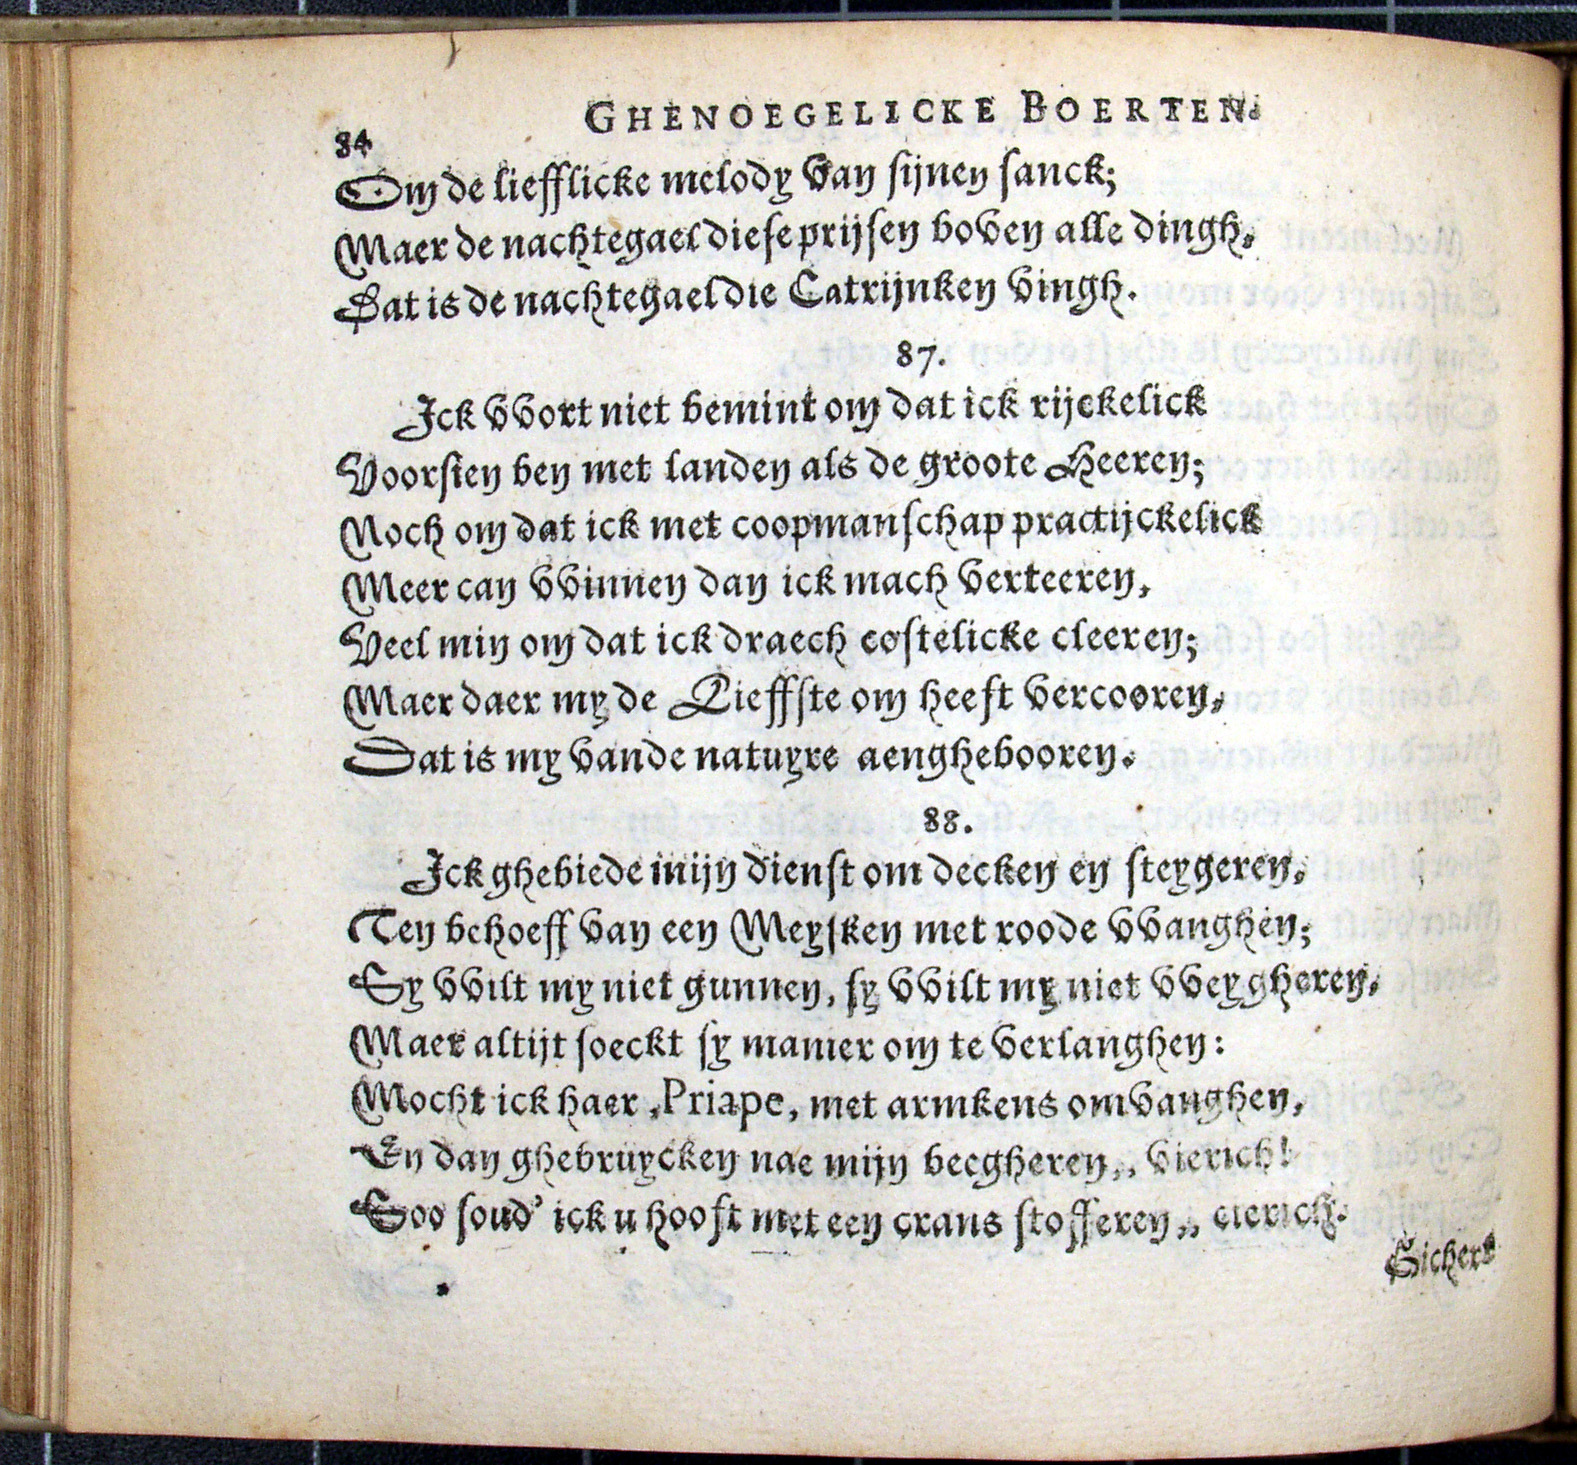 GHENOEGELICKE BOERTEN.
84
Om de liefflicke melody van sijnen sanck;
Maer de nachtegael diese prijsen boven alle dingh,
Dat is de nachtegael die Catrijnken vingh.
87.
Ick vvort niet bemint om dat ick rijckelick
Voorsien ben met landen als de groote Heeren;
Noch om dat ick met coopmanschap practijckelick
Meer can vvinnen dan ick mach verteeren,
Veel min om dat ick draech costelicke cleeren;
Maer daer my de Lieffste om heeft vercooren,
Dat is my vande natuyre aenghebooren.
88.
Ick ghebiede mijn dienst om decken en steygeren,
Ten behoeff van een Meysken met roode vvanghen;
Sy vvilt my niet gunnen, sy vvilt my niet vveygheren,
Maer altijt soeckt sy manier om te verlanghen:
Mocht ick haer, Priape, met armkens omvanghen,
En dan ghebruycken nae mijn beegheren,, vierich!
Soo soud' ick u hooft met een crans stofferen,, cierich.
Sichers